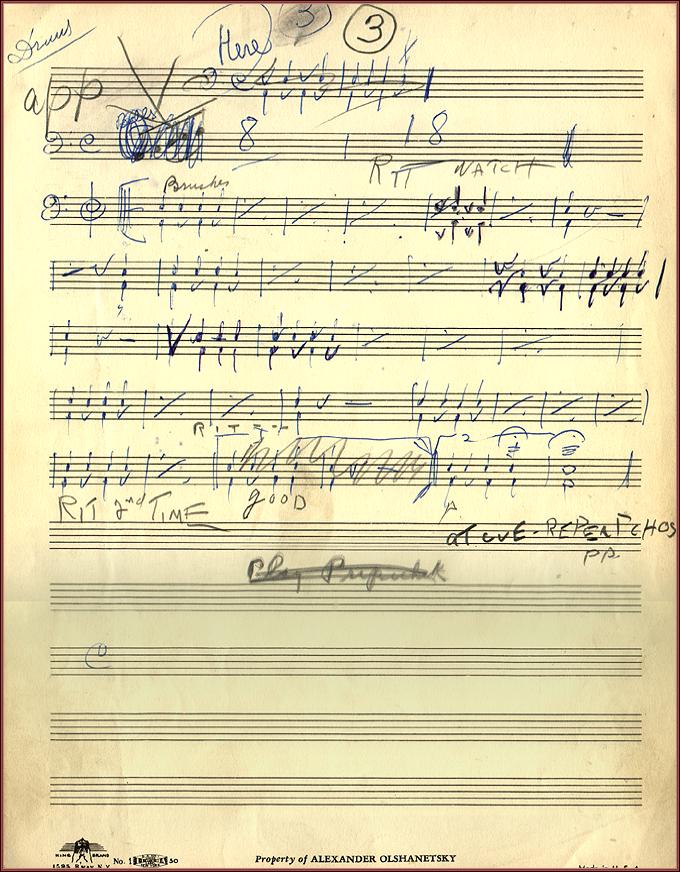 Drums Here 3 3
app
8 1 8
RIT WATCH
Brushes
RIT
2
RIT 2nd TIME GOOD
AT CUE - REPEAT CHOS
PP
Play Pripetchik
C
KING BRAND
1595 B'WAY N.Y. No. 1
Property of ALEXANDER OLSHANETSKY
Made in U.S.A.